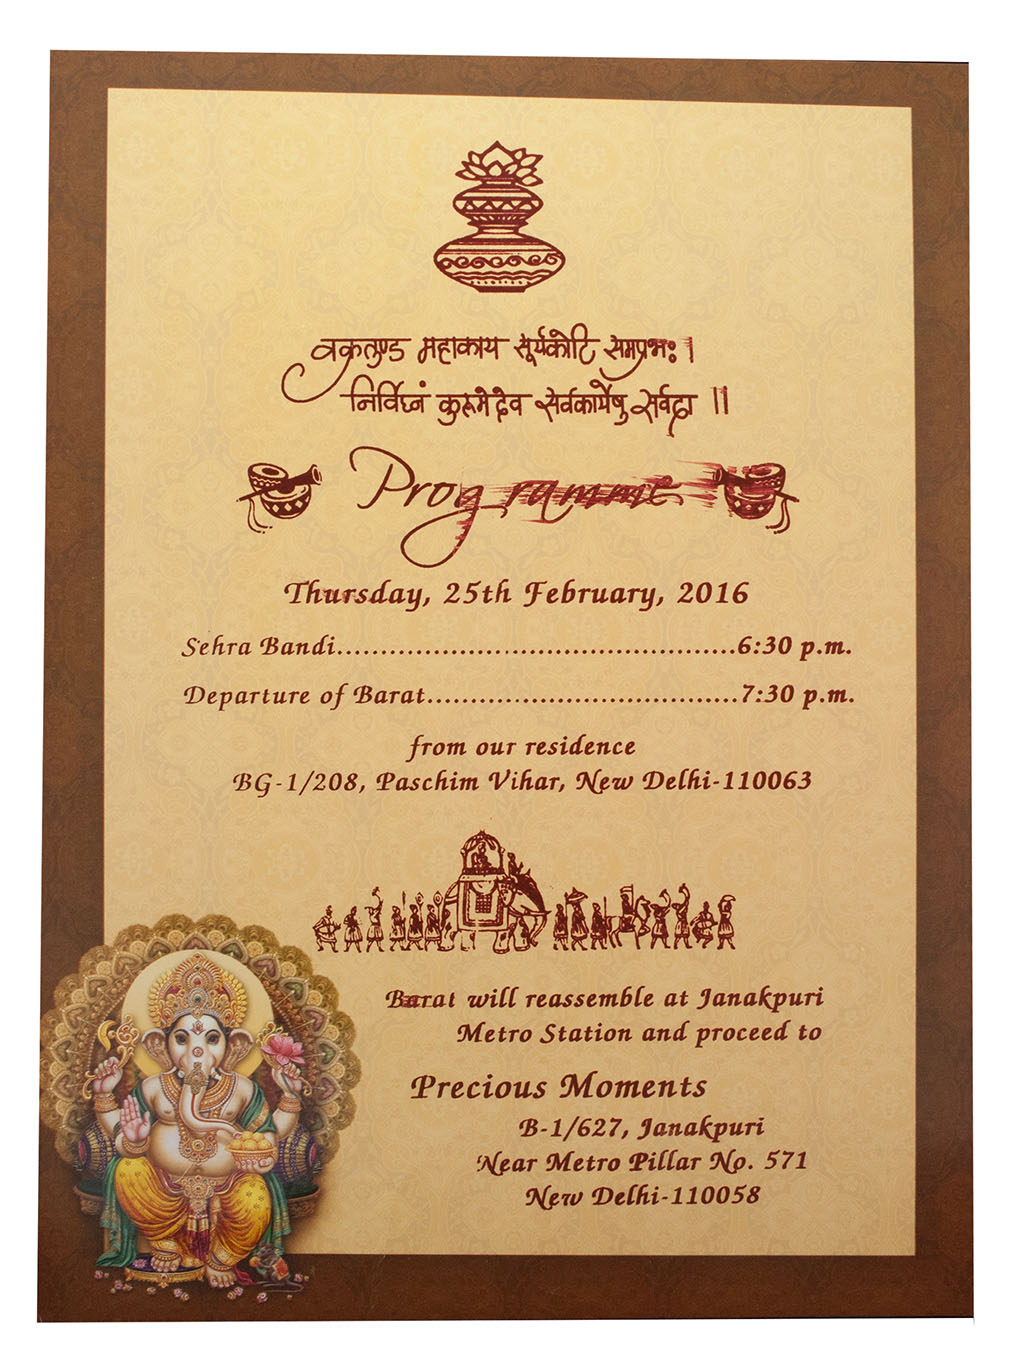 वक्रतुण्ड महाकाय सूर्यकोटि समप्रभः।
निर्विघ्नं कुरूमेदेव सर्वकार्येषु सर्वदा ॥
Programme
Thursday, 25th February, 2016
Sehra Bandi.............................................6:30 p.m.
Departure of Barat...................................7:30 p.m.
from our residence
BG-1/208, Paschim Vihar, New Delhi-110063
Barat will reassemble at Janakpuri
Metro Station and proceed to
Precious Moments
B-1/627, Janakpuri
Near Metro Pillar No. 571
New Delhi-110058